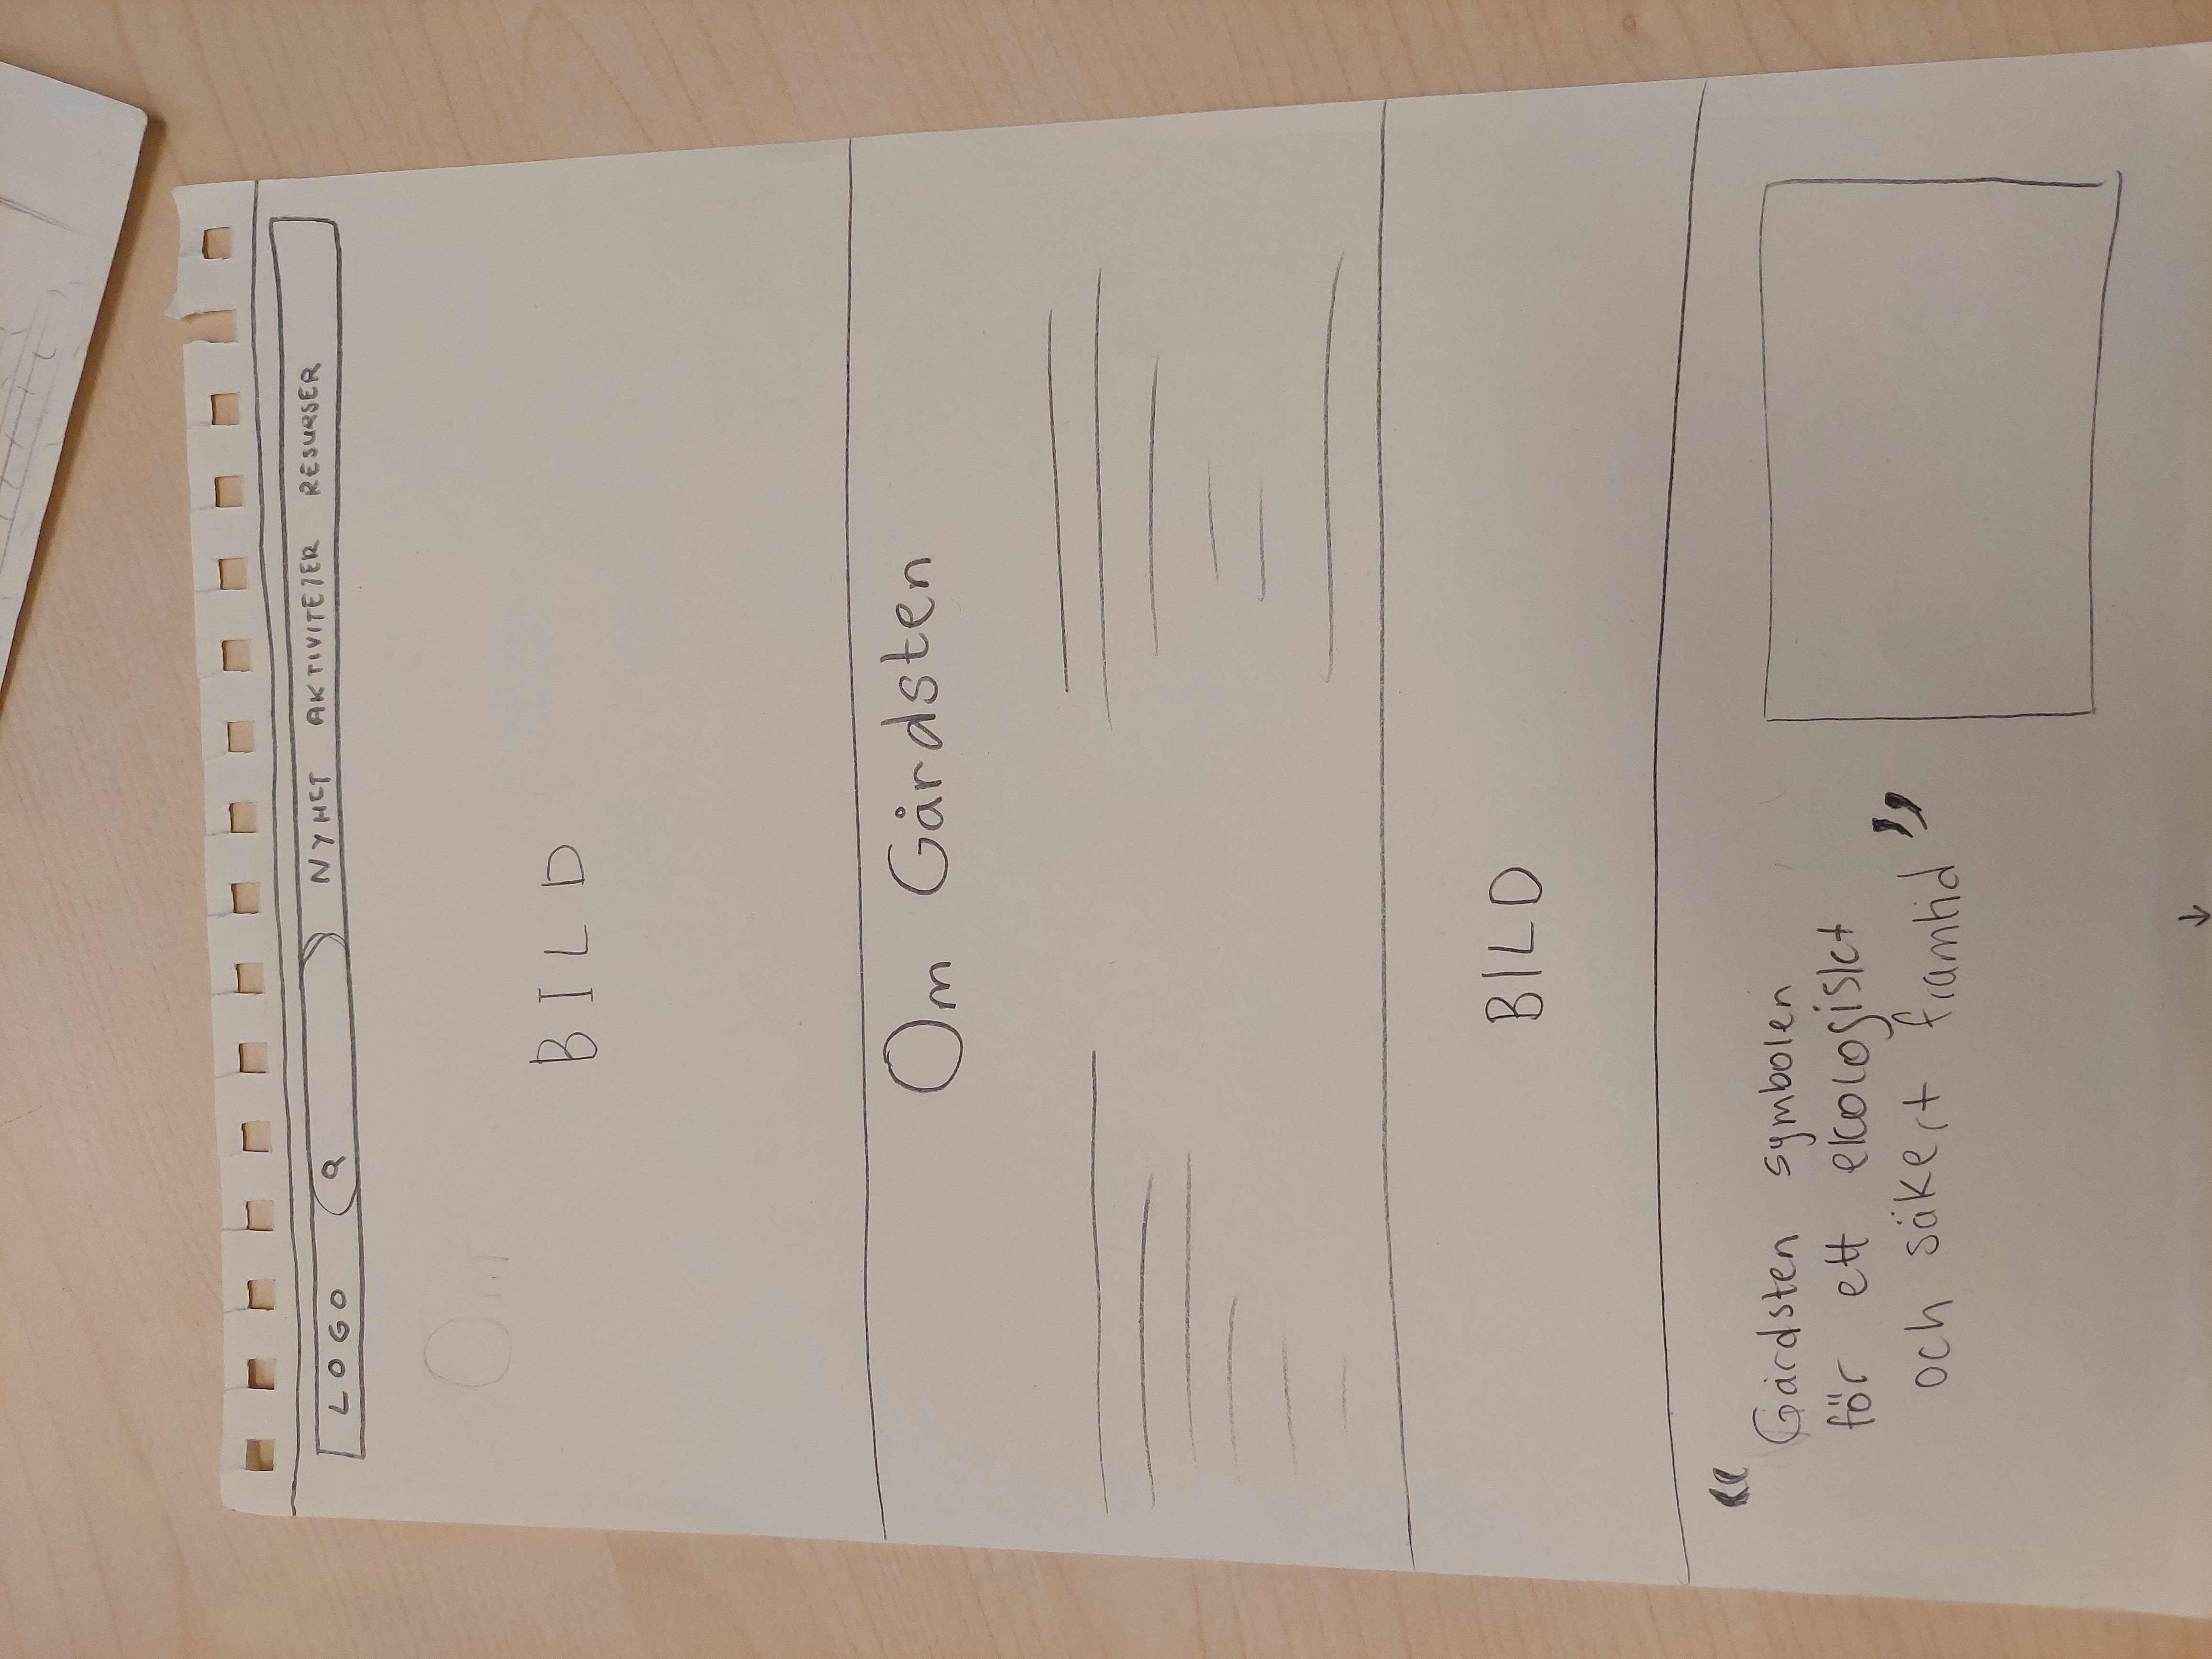 LOGO NYHET AKTIVITETER RESURSER
Om
BILD
Om Gårdsten
BILD
“
Gårdsten symbolen
för ett ekologiskt
och säkert framtid ”